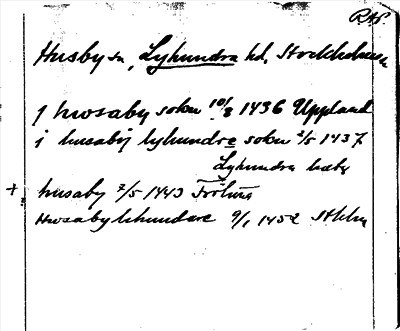 RAP.
Husby sn, Lyhundra hd, Stockholms ln
j hwsaby soken 10/8 1436 Uppland
j husabij lyhundre soken 2/5 1437
Lyhundra
+ husaby 7/5 1443 Frötuna
Hwsaby lihundare 9/1 1452 Sthlm